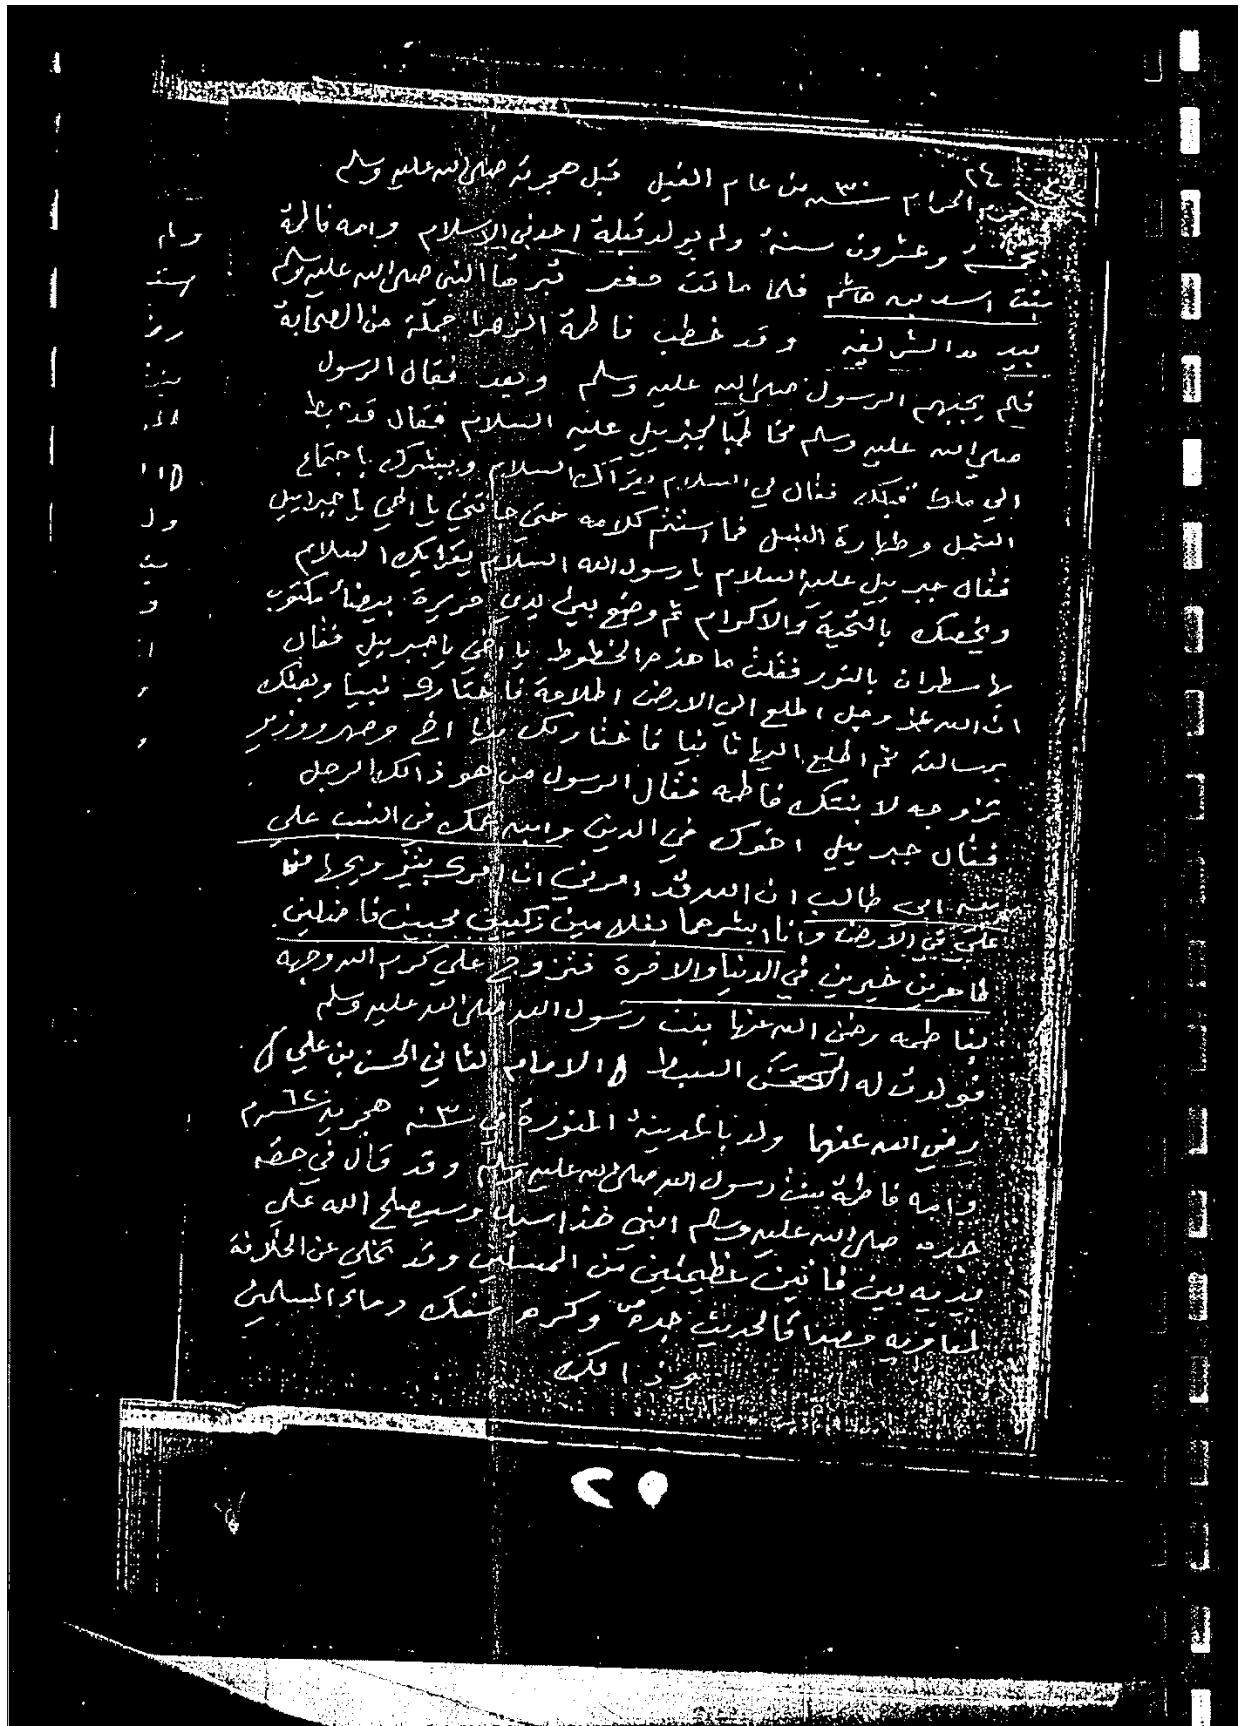 ٢٤
محرم الحرام سنه ٣٠ من عام الفيل قبل هجرته صلى الله عليه وسلم
بخمسة وعشرون سنة ولم يولد قبله احد في الاسلام وامه فاطمة
بنت اسد بن هاشم فلما ماتت حفر قبرها النبى صلى الله عليه وسلم
بيده الشريفه وقد خطب فاطمة الزهرا جملة من الصحابة
فلم يجبهم الرسول صلى الله عليه وسلم وبعد فقال الرسول
صلى الله عليه وسلم مخاطبا لجبريل عليه السلام فقال قد هبط
الي ملك قبلك فقال لي السلام يقرأك السلام ويبشرك باجتماع
الشمل وطهارة النسل فما استتم كلامه حتى جائني يا اخي يا جبرايل
فقال جبريل عليه السلام يا رسول الله السلام يقرايك السلام
ويخصك بالتحية والاكرام ثم وضع بين يدي حريرة بيضأ مكتوب
بها سطران بالنور فقلت ما هذه الخطوط يا اخي يا جبريل فقال
ان الله عز وجل اطلع الي الارض اطلاعة فاختارك نبيا وبعثك
برسالته ثم اطلع اليها ثانيا فاختار لك منها اخ وصهر ووزير
تزوجه لابنتك فاطمه فقال الرسول من هو ذالك الرجل
فقال جبريل اخوك في الدين وابن عمك في النسب علي
بن ابي طالب ان الله قد امرني ان امرك بتزويجها من
علي في الارض وانا ابشرهما بغلامين زكيين نجيبين فاضلين
طاهرين خيرين في الدنيا والاخرة فتزوج علي كرم الله وجهه
بفاطمه رضى الله عنها بنت رسول الله صلى الله عليه وسلم
فولدت له الحسن السبط الامام الثاني الحسن بن علي
رضي الله عنهما ولد بالمدينة المنورة في سنه ٣ هجرية
وامه فاطمة بنت رسول الله صلى الله عليه وسلم وقد قال في حقه
جده صلى الله عليه وسلم ابنى هذا سيد وسيصلح الله على
يديه بين فأتين عظيمتين من المسلمين وقد تخلي عن الخلافة
لمعاويه مصداقا لحديث جده ص وكره سفك دماء المسلمين
وذالك
٢٥